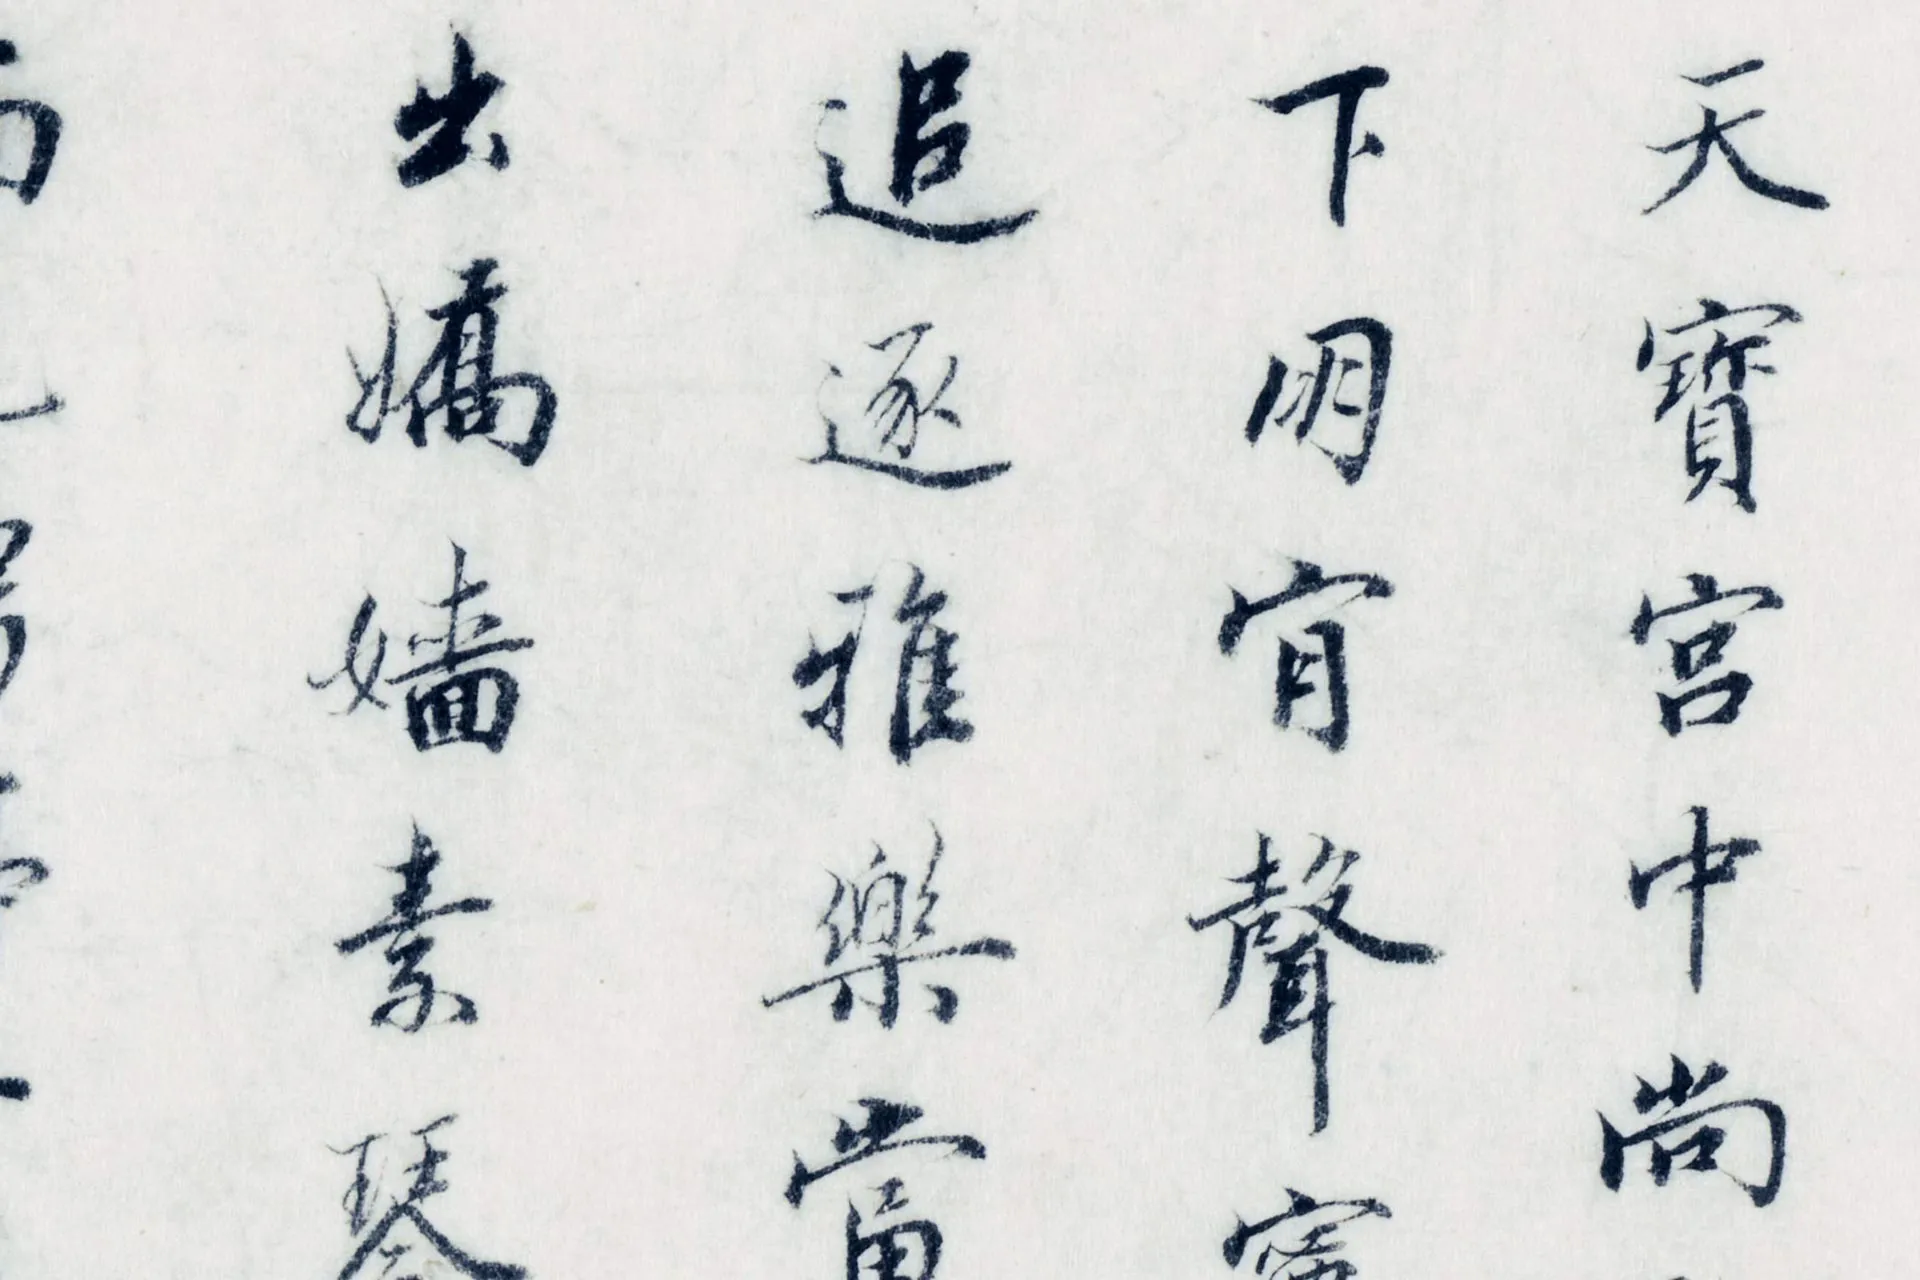 天寶宮中尚
下明宵聲
追逐雅樂當
出嬌嬙素琴